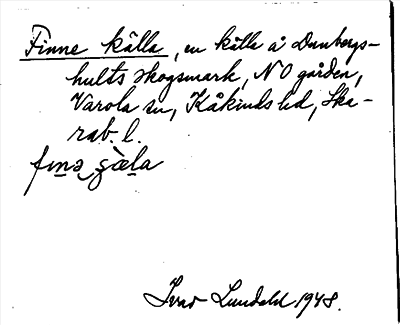 Finne källa, en källa å Dunbergs-
hults skogsmark, N O gården,
Varola sn, Kåkinds hd, Ska-
rab. l.
fɪnə ɕæla
Ivar Lundahl 1948.